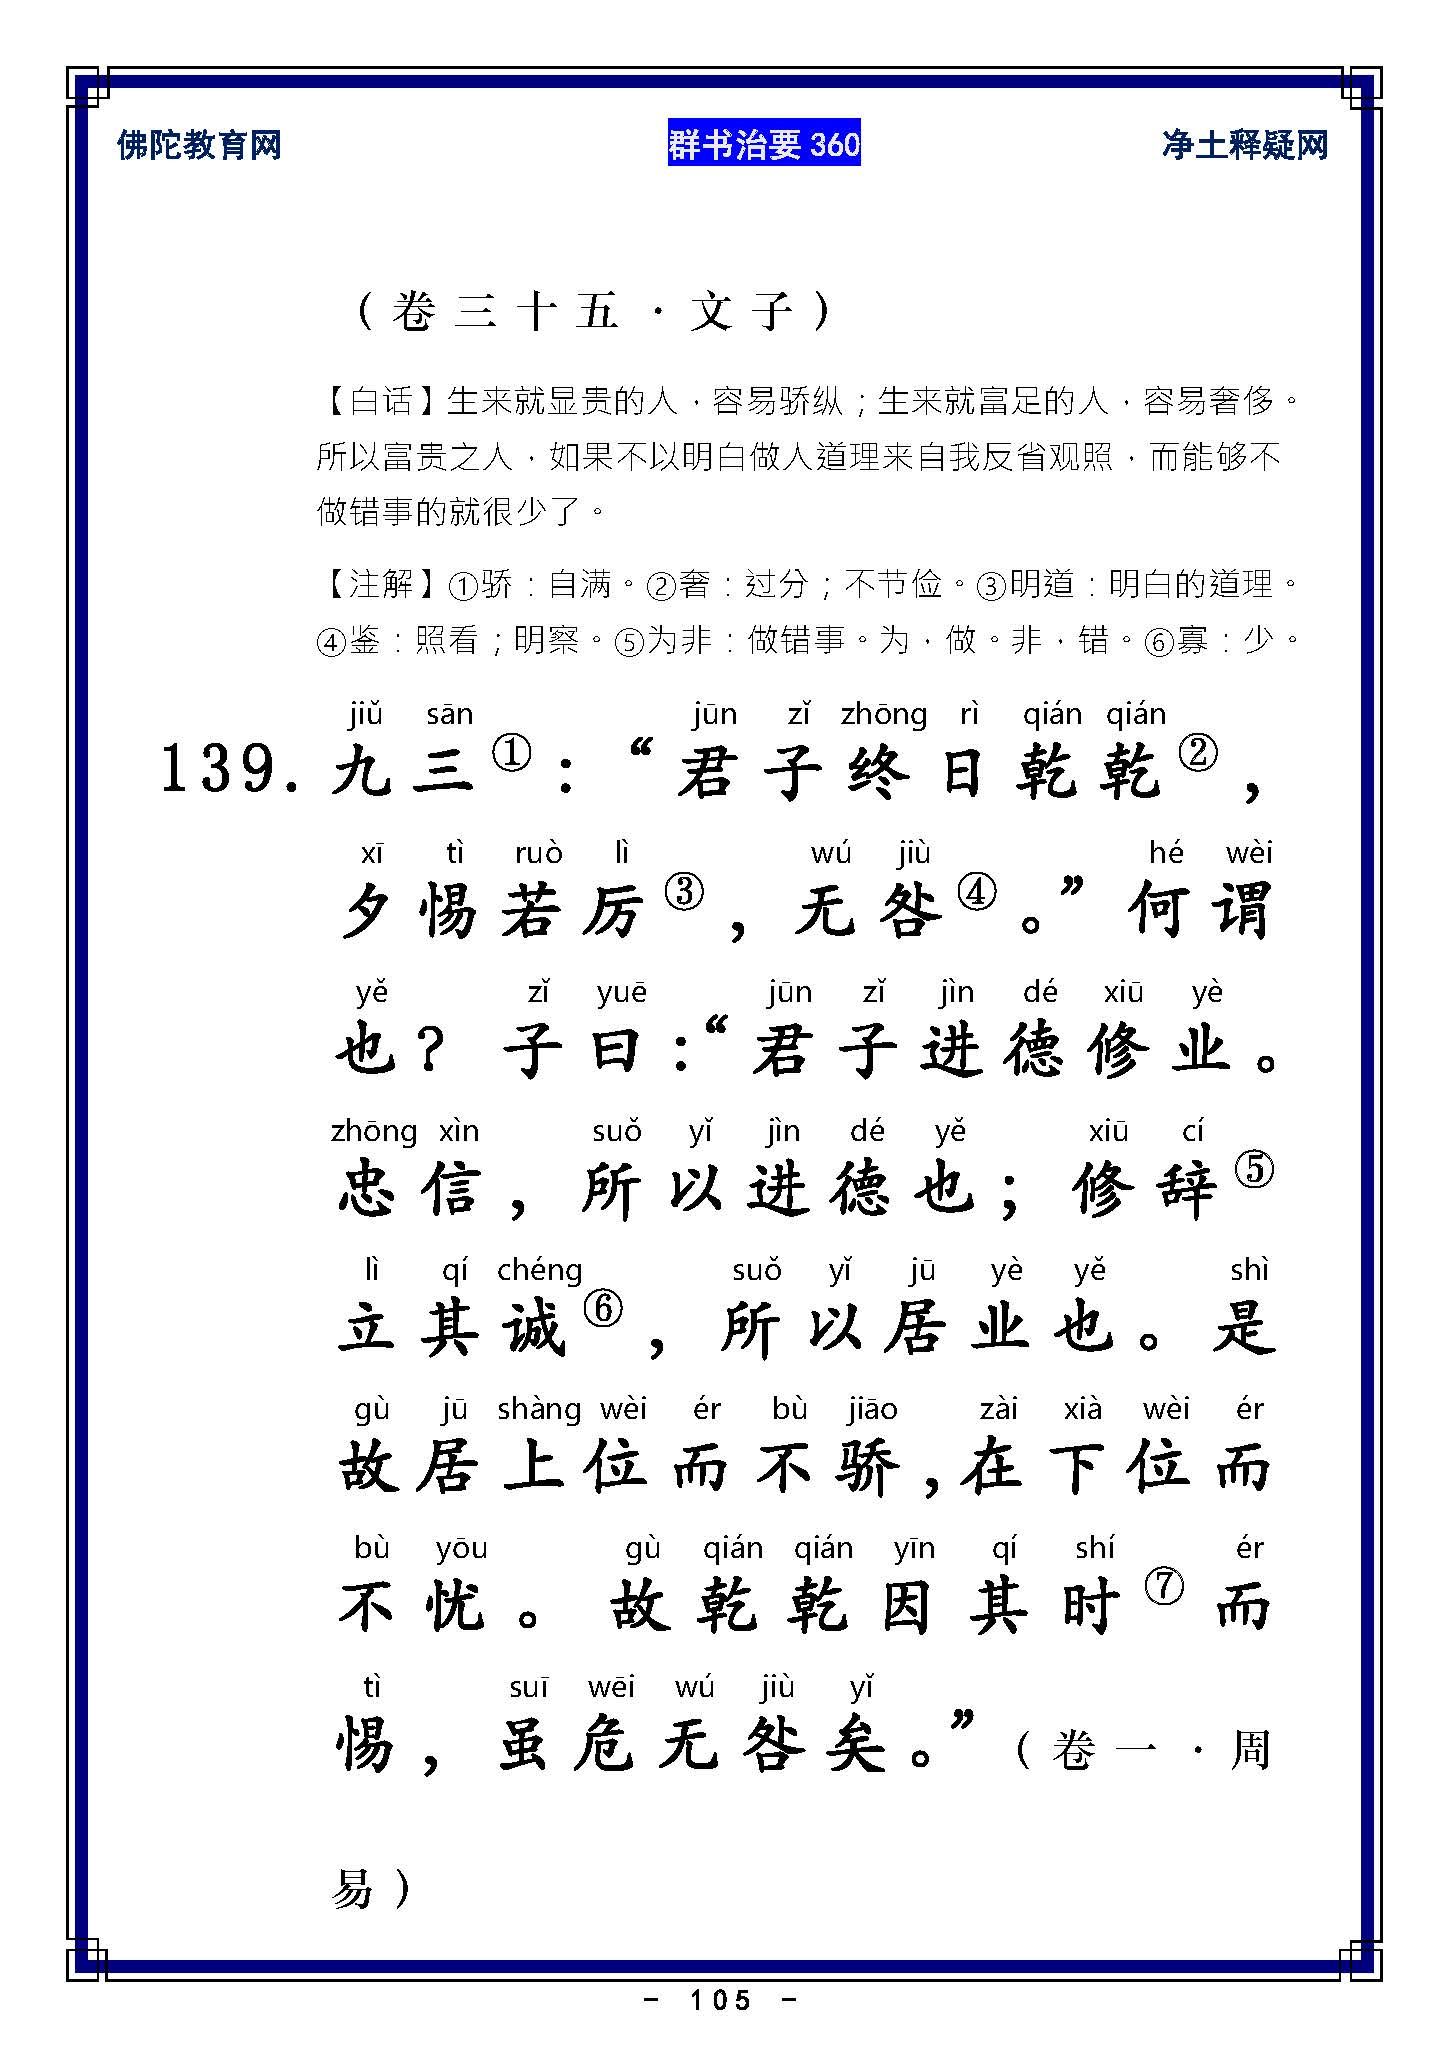 佛陀教育网 群书治要 360 净土释疑网
（卷三十五·文子）
【白话】生来就显贵的人，容易骄纵；生来就富足的人，容易奢侈。
所以富贵之人，如果不以明白做人道理来自我反省观照，而能够不
做错事的就很少了。
【注解】①骄：自满。②奢：过分；不节俭。③明道：明白的道理。
④鉴：照看；明察。⑤为非：做错事。为，做。非，错。⑥寡：少。
jiǔ sān jūn zǐ zhōng rì qián qián
139. 九三①：“君子终日乾乾②，
xī tì ruò lì wú jiù hé wèi
夕惕若厉③，无咎④。”何谓
yě zǐ yuē jūn zǐ jìn dé xiū yè
也？子曰：“君子进德修业。
zhōng xìn suǒ yǐ jìn dé yě xiū cí
忠信，所以进德也；修辞⑤
lì qí chéng suǒ yǐ jū yè yě shì
立其诚⑥，所以居业也。是
gù jū shàng wèi ér bù jiāo zài xià wèi ér
故居上位而不骄，在下位而
bù yōu gù qián qián yīn qí shí ér
不忧。故乾乾因其时⑦而
tì suī wēi wú jiù yǐ
惕，虽危无咎矣。”（卷一·周
易）
- 105 -